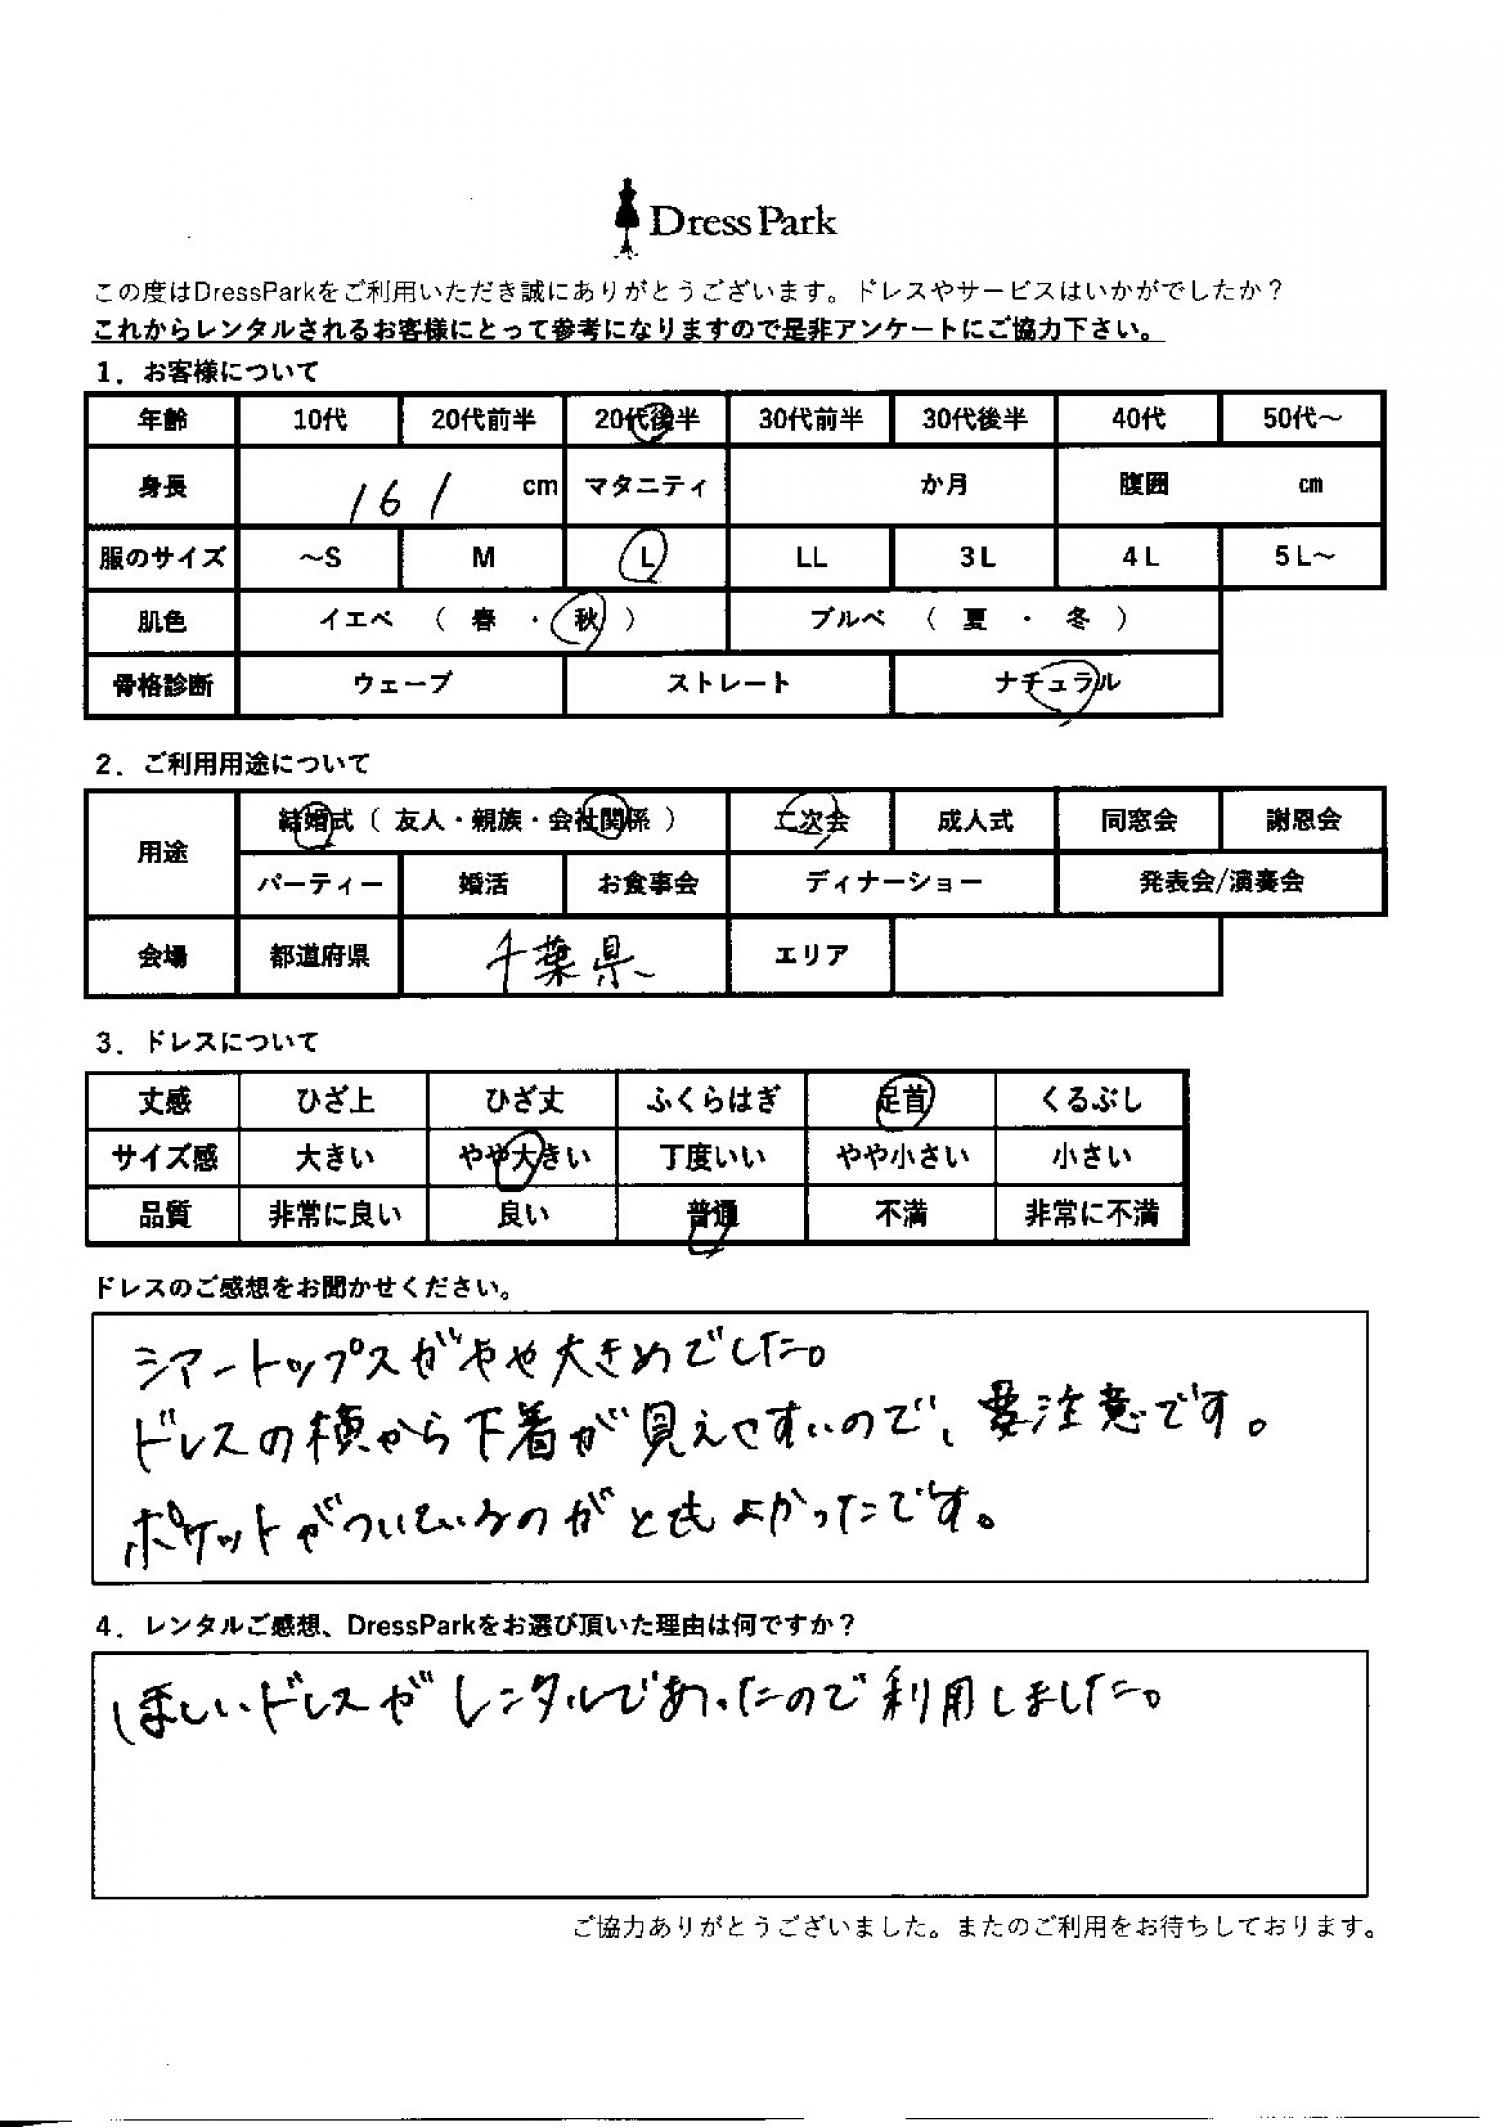 Dress Park
この度はDressParkをご利用いただき誠にありがとうございます。ドレスやサービスはいかがでしたか？
これからレンタルされるお客様にとって参考になりますので是非アンケートにご協力下さい。
1．お客様について
年齢 10代 20代前半 20代後半 30代前半 30代後半 40代 50代～
身長 161 cm マタニティ か月 腹囲 cm
服のサイズ ～S M L LL 3L 4L 5L～
肌色 イエベ （ 春 ・ 秋 ） ブルベ （ 夏 ・ 冬 ）
骨格診断 ウェーブ ストレート ナチュラル
2．ご利用用途について
用途 結婚式（ 友人・親族・会社関係 ） 二次会 成人式 同窓会 謝恩会
パーティー 婚活 お食事会 ディナーショー 発表会/演奏会
会場 都道府県 千葉県 エリア
3．ドレスについて
丈感 ひざ上 ひざ丈 ふくらはぎ 足首 くるぶし
サイズ感 大きい やや大きい 丁度いい やや小さい 小さい
品質 非常に良い 良い 普通 不満 非常に不満
ドレスのご感想をお聞かせください。
シアートップスがやや大きめでした。
ドレスの横から下着が見えやすいので、要注意です。
ポケットがついているのがとてもよかったです。
4．レンタルご感想、DressParkをお選び頂いた理由は何ですか？
ほしいドレスがレンタルであったので利用しました。
ご協力ありがとうございました。またのご利用をお待ちしております。